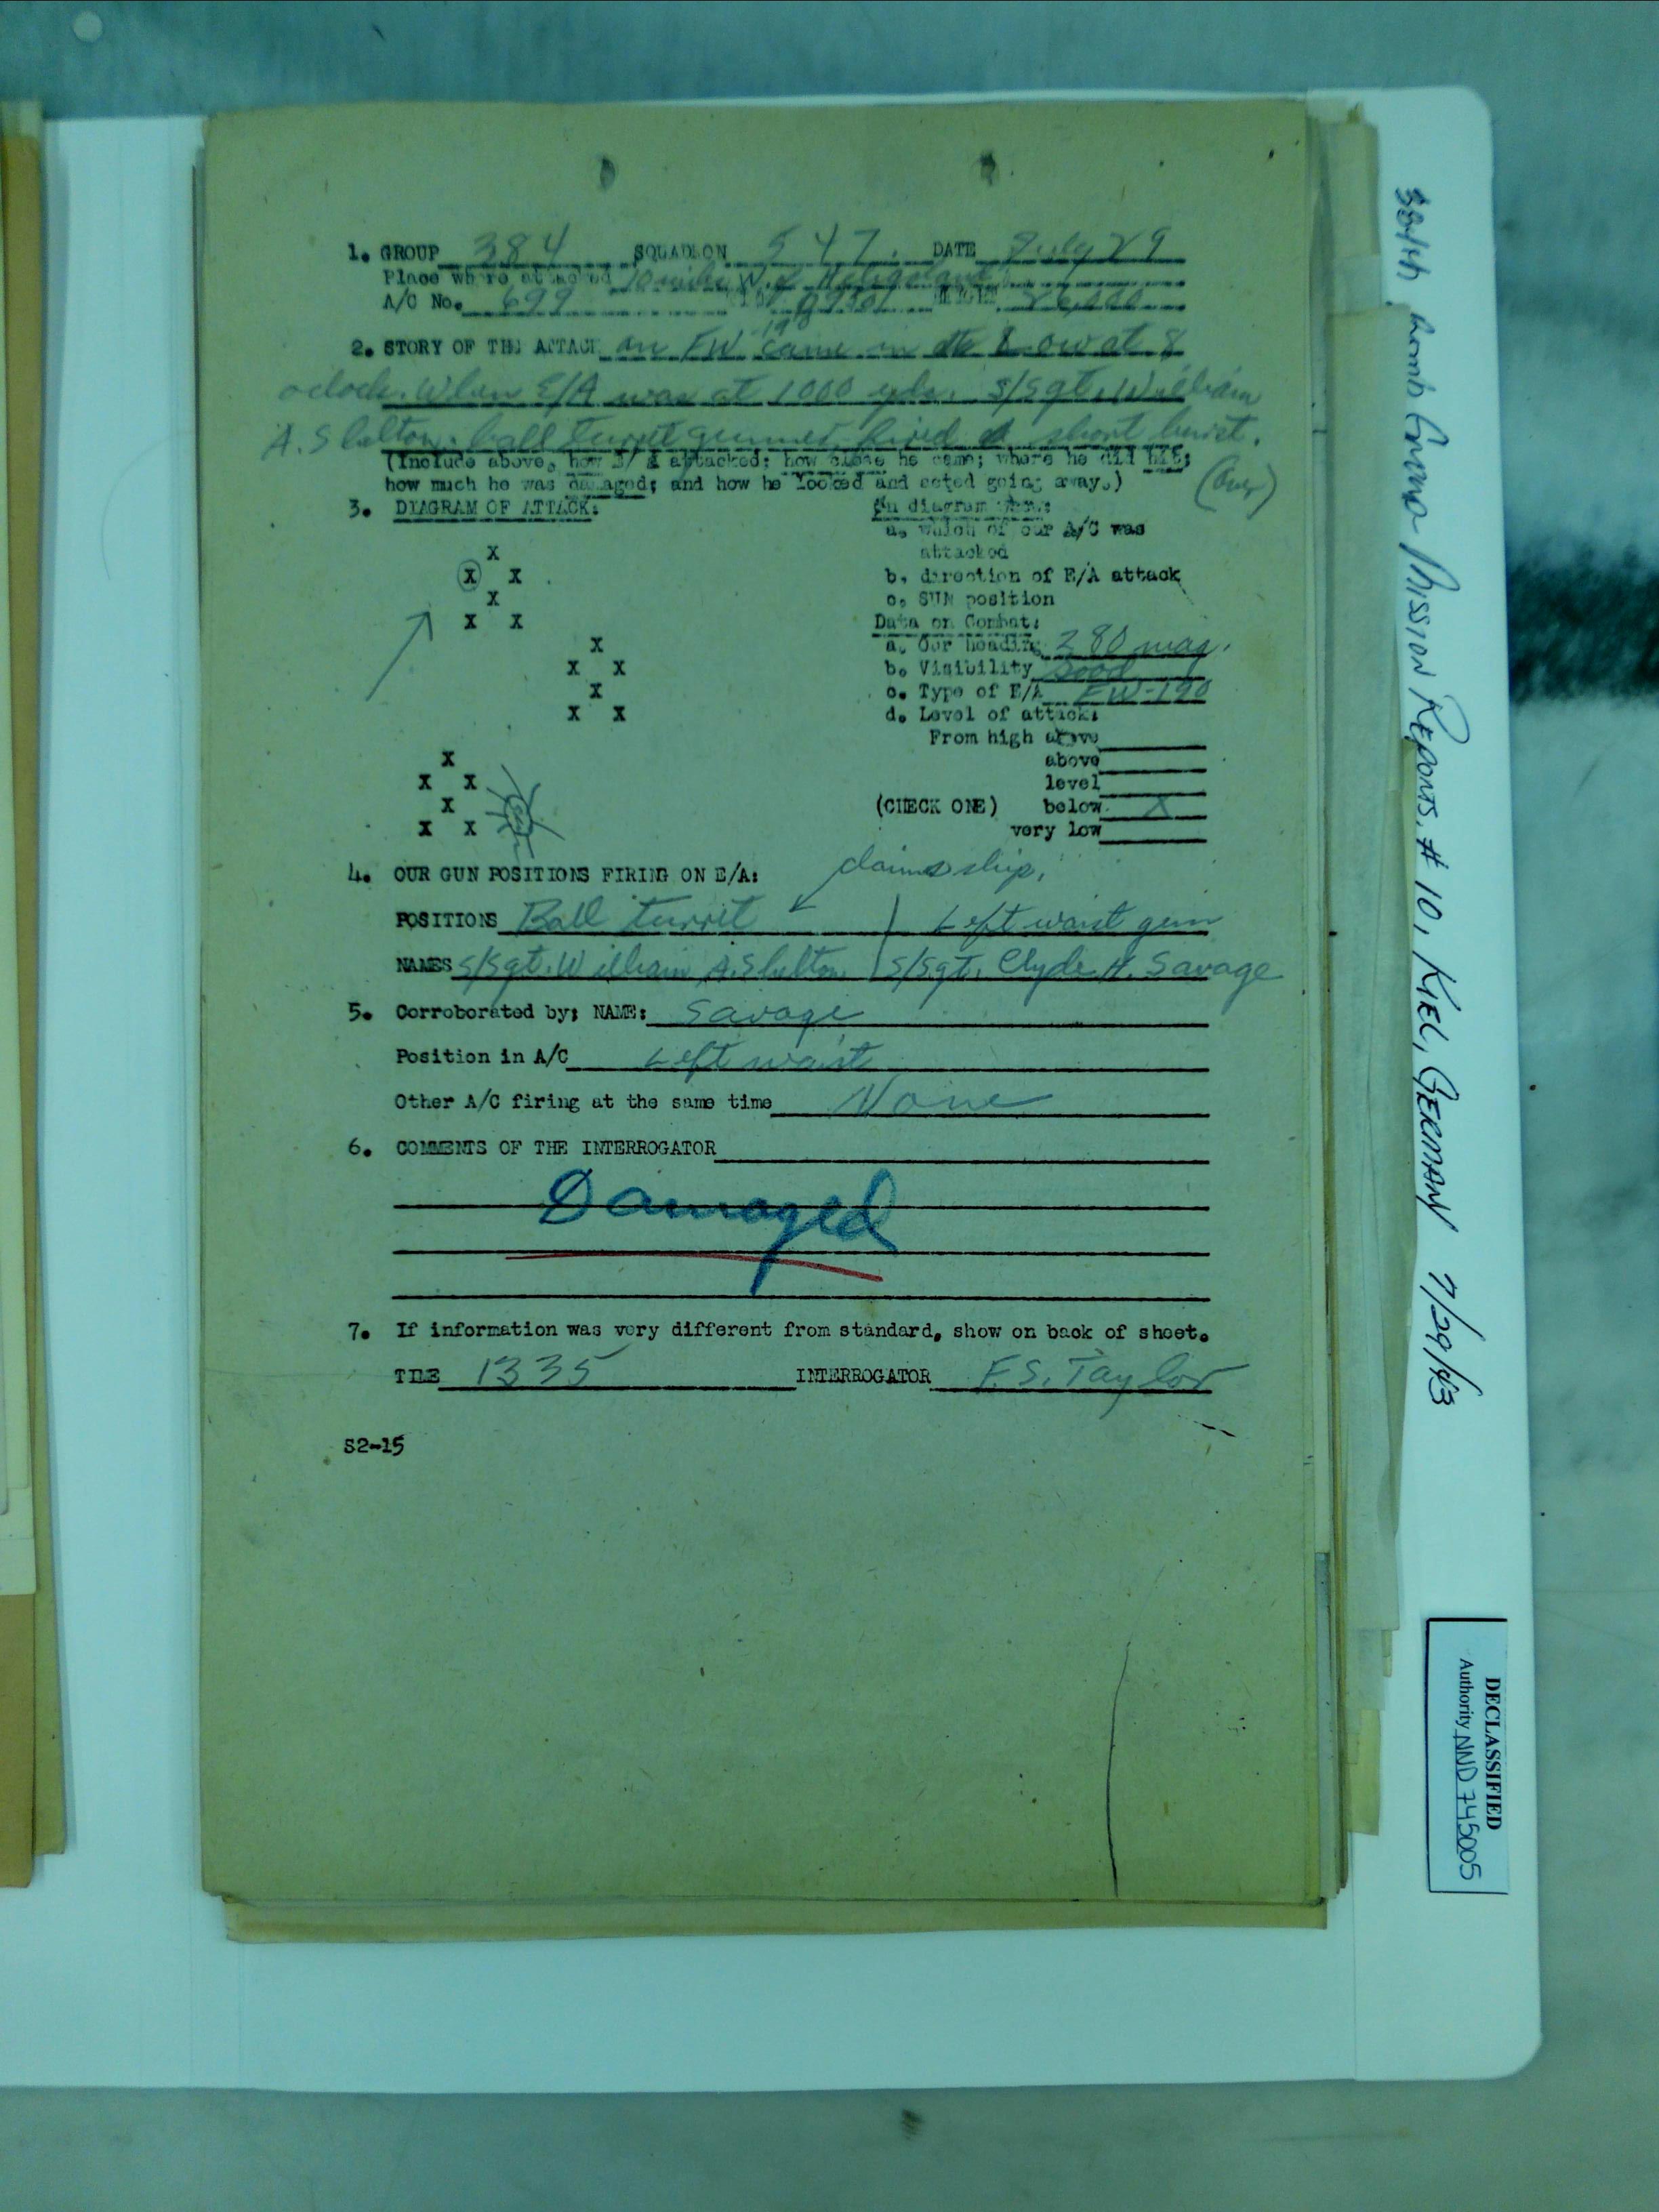 1. GROUP 384 SQUADRON 547. DATE July 29
Place where attacked 10 miles W. of Heligoland
A/C No. 699 0930 HEIGHT 26,000
2. STORY OF THE ATTACK an FW-190 came in low at 8
oclock. When E/A was at 1000 yds. S/Sgt. William
A. Shelton, ball turret gunner fired a short burst.
(Include above, how E/A attacked; how close he came; where he did hit;
how much he was damaged; and how he looked and acted going away.) (Over)
3. DIAGRAM OF ATTACK:
On diagram show:
a. which of our A/C was
attacked
b. direction of E/A attack
c. SUN position
Data on Combat:
a. Our heading 280 mag.
b. Visibility Good
c. Type of E/A FW-190
d. Level of attack:
From high above
above
level
(CHECK ONE) below X
very low
X
X X
X
X X
X
X X
X
X X
X
X X
X
X X
4. OUR GUN POSITIONS FIRING ON E/A: claims ship.
POSITIONS Ball turrit / Left waist gun
NAMES S/Sgt. William A. Shelton / S/Sgt. Clyde H. Savage
5. Corroborated by: NAME: Savage
Position in A/C Left waist
Other A/C firing at the same time None
6. COMMENTS OF THE INTERROGATOR
Damaged
7. If information was very different from standard, show on back of sheet.
TIME 1335 INTERROGATOR F.S. Taylor
S2-15
384th Bomb Group Mission Reports, # 10, KIEL, GERMAN 7/29/43
DECLASSIFIED
Authority NND 745005